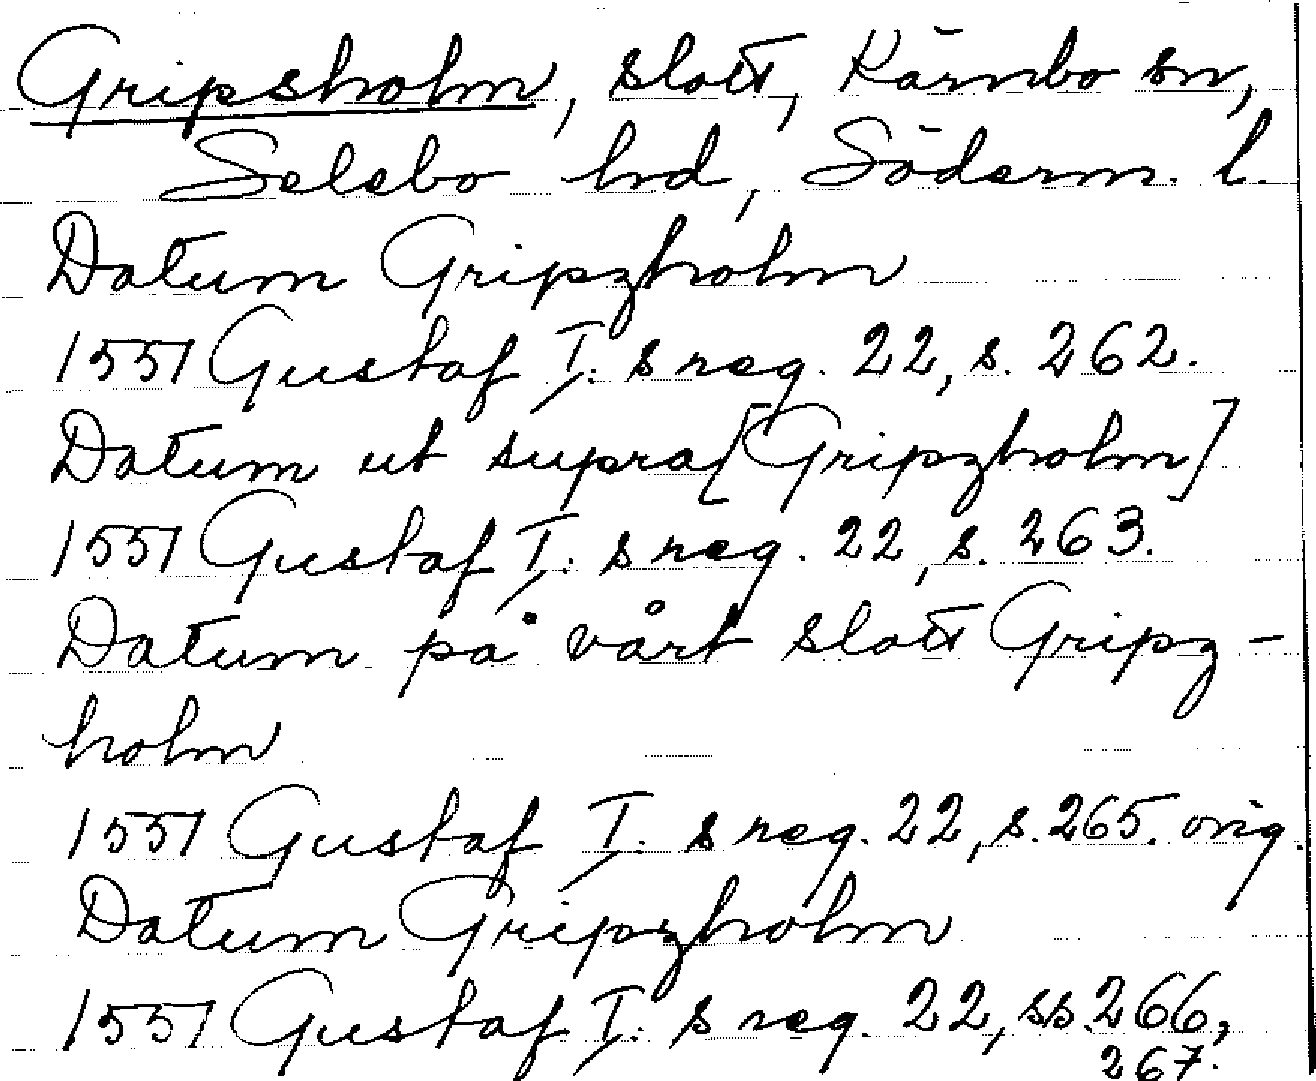 Gripsholm, slott, Kärnbo sn,
Selebo hd, Söderm. l.
Datum Gripzholm
1551 Gustaf I: s reg. 22, s. 262.
Datum ut supra [Gripzholm]
1551 Gustaf I: s reg. 22, s. 263.
Datum på vårt slott Gripz-
holm
1551 Gustaf I: s reg. 22, s. 265. orig.
Datum Gripszholm
1551 Gustaf I: s reg. 22, ss. 266,
267.